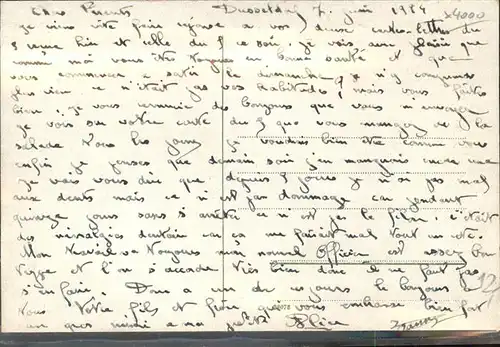 Chers Parents Dusseldorf 7 juin 1924 x4000
je viens vite faire réponse a vos deux cartes-lettres du
5 reçue hier et celle du 5 ce soir, je vois avec plaisir que
comme moi vous êtes toujours en bonne santé et que
vous commencer a sortir le dimanche, je n'y comprend
plus rien ce n'était pas vos habitudes, mais vous faites
bien, je vous remercie des bonjours que vous m'envoyez
je vois sur votre carte du 5 que vous mangez de la
salade tous les jours je voudrais bien être comme vous
enfin je penses que demain soir j'en mangerais encore une
je vais vous dire que depuis 5 jours je n'ai pas mal
aux dents mais ce n'est pas dommage car pendant
quinze jours sans s'arrêter ce n'est pas le filon. c'était
des névralgies dentaire car ça me faisait mal tout un côté.
Mon travail va toujours mon nouvel Officier est assez bon
type et l'on s'accorde très bien donc il ne faut pas
s'en faire. Dans un de ces jours le bonjour à
tous Votre fils et frère qui vous embrasse bien fort
ainsi que mimi a ma petite 12